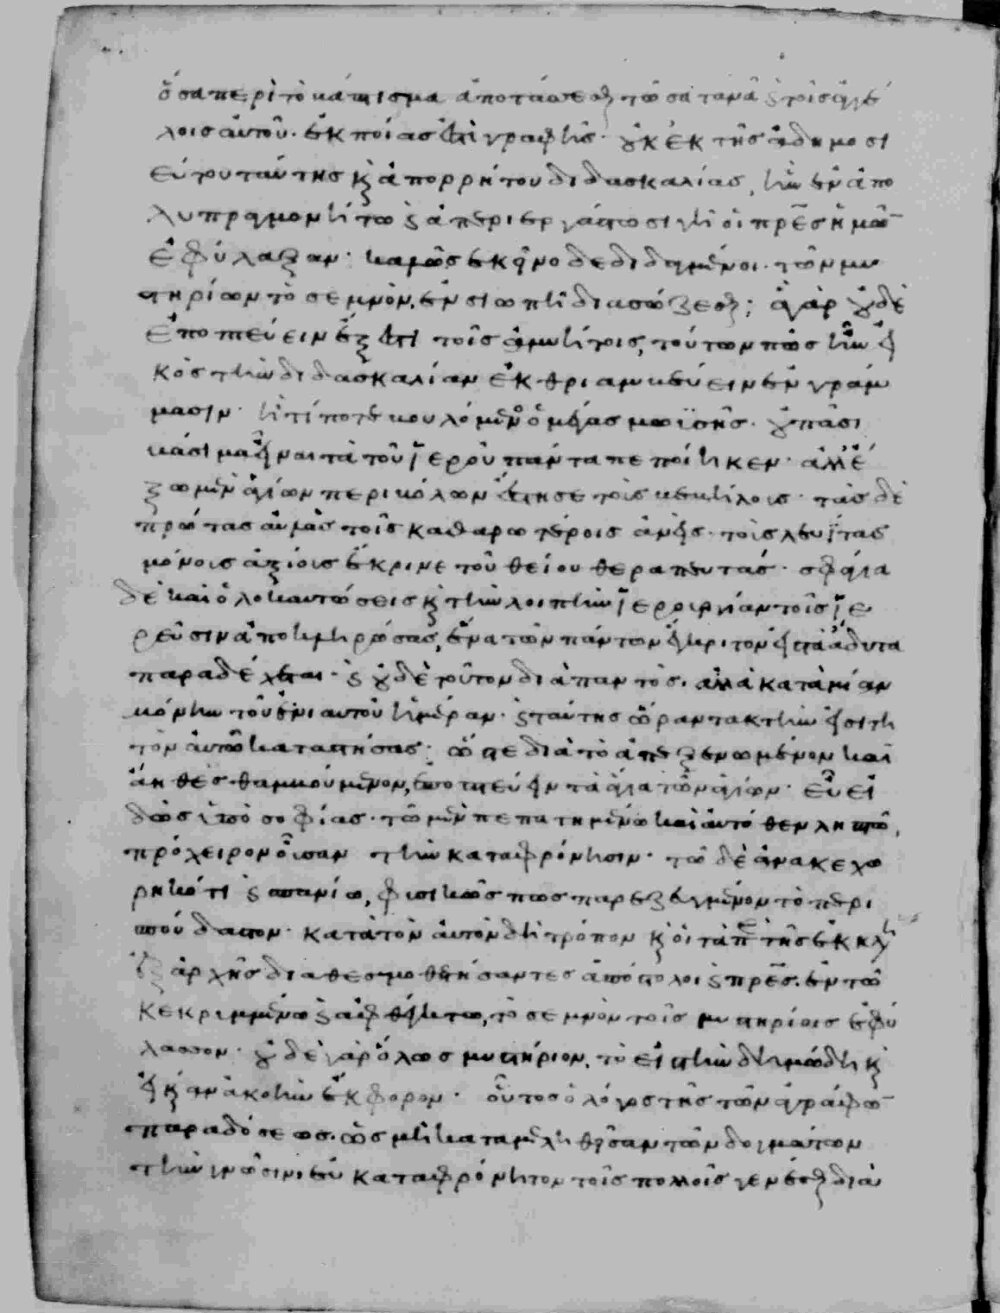 ὅσα περὶ τὸ βάπτισμα ἀποτάσσεσθαι τῶ σατανᾶ καὶ τοῖς ἀγγέ
λοις αὐτοῦ· ἐκ ποίας ἐστὶ γραφῆς· οὐκ ἐκ τῆς ἀδημοσι
εύτου ταύτης καὶ ἀπορρήτου διδασκαλίας, ἣν ἐν ἀπο
λυπραγμονήτω καὶ ἀπεριεργάστω σιγῆ οἱ πρ̅ε̅ς ἡμῶν
ἐφύλαξαν· καλῶς ἐκεῖνο δεδιδαγμένοι· τῶν μυ
στηρίων τὸ σεμνὸν, ἐν σιωπῆ διασώζεσθαι; ἃ γὰρ οὐδὲ
ἐποπτεύειν ἔξεστι τοῖς ἀμυήτοις, τούτων πῶς ἦν εἰ
κὸς τὴν διδασκαλίαν ἐκθριαμβεύειν ἐν γράμ
μασιν· ἢ τί ποτε βουλόμενος ὁ μέγας μωϋσῆς· οὐ πᾶσι
βάσιμα εἶναι τὰ τοῦ ἱεροῦ πάντα πεποίηκεν· ἀλλ' ἔ
ξω μὲν ἁγίων περιβόλων ἔστησε τοὺς βεβήλοις· τὰς δὲ
πρώτας αὐλὰς τοῖς καθαρωτέροις ἀνεὶς· τοὺς λευΐτας
μόνοις ἀξίοις ἔκρινε τοῦ θείου θεραπευτάς· σφάγια
δὲ καὶ ὁλοκαυτώσεις καὶ τὴν λοιπὴν ἱερουργίαν τοῖς ἱε
ρεῦσιν ἀποκληρώσας, ἕνα τῶν πάντων ἔκκριτον εἰς τὰ ἄδυτα
παραδέχεται· καὶ οὐδὲ τοῦτον διὰ παντὸς· ἀλλὰ κατὰ μίαν
μόνην τοῦ ἐνιαυτοῦ ἡμέραν· καὶ ταύτης ὥραν τακτὴν εἰσιτη
τὸν αὐτῶ καταστήσας· ὥστε διὰ τὸ ἀπεξενωμένον καὶ
ἄηθες θαμβούμενον, ἐποπτεύειν τὰ ἅγια τῶν ἁγίων· εὖ εἰ
δὼς ὑπὸ σοφίας· τῶ μὲν πεπατημένω καὶ αὐτόθεν ληπτῶ,
πρόχειρον οὖσαν τὴν καταφρόνησιν· τῶ δὲ ἀνακεχω
ρηκότι καὶ σπανίω, φυσικῶς πως παρεζευγμένον τὸ περι
σπούδαστον· κατὰ τὸν αὐτὸν δὴ τρόπον καὶ οἱ τὰ π(ε)ρ(ὶ) τῆς ἐκκλη
ἐξ ἀρχῆς διαθεσμοθετήσαντες ἀπόστολοι καὶ πρ̅ε̅ς· ἐν τῶ
κεκρυμμένω καὶ ἀφθέγκτω, τὸ σεμνὸν τοῖς μυστηρίοις ἐφύ
λασσον· οὐδὲ γὰρ ὅλως μυστήριον, τὸ εἰς τὴν δημώδη καὶ
εἰκαίαν ἀκοὴν ἔκφορον· οὗτος ὁ λόγος τῆς τῶν ἀγράφων
παραδόσεως· ὡς μὴ καταμεληθεῖσαν τῶν δογμάτων
τὴν γνῶσιν εὐκαταφρόνητον τοῖς πολλοῖς γενέσθαι διὰ